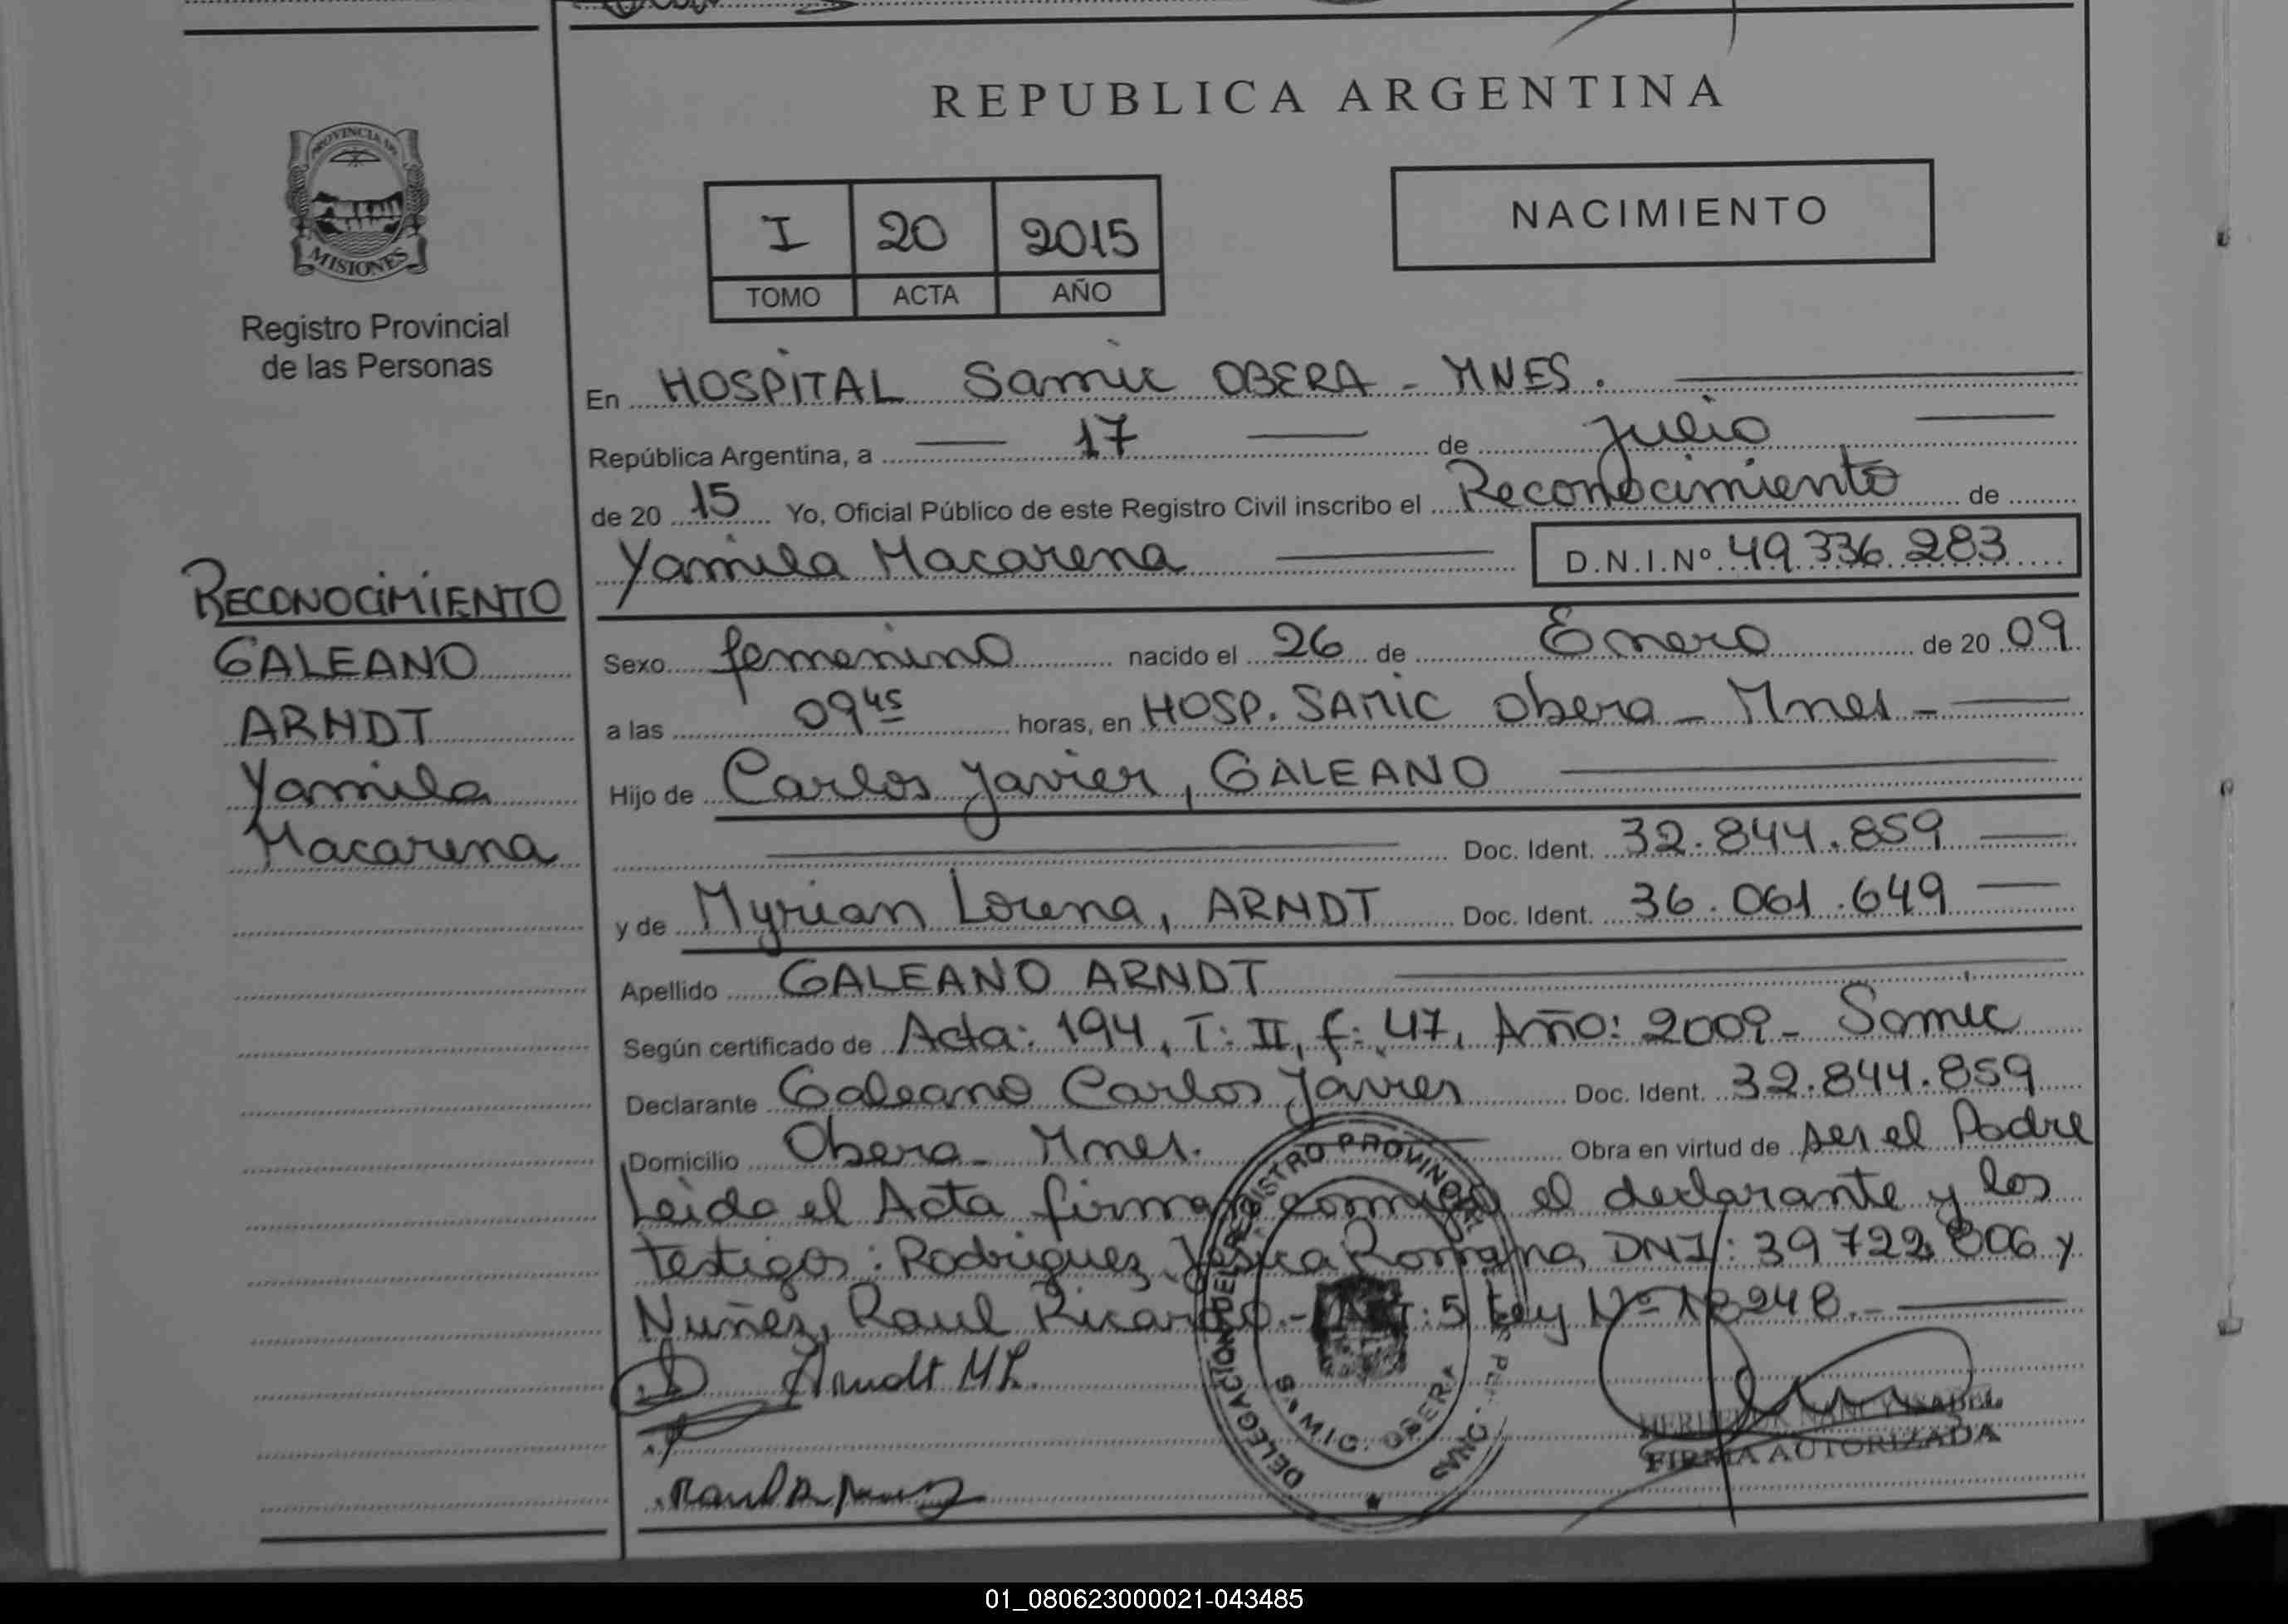 REPUBLICA ARGENTINA
PROVINCIA DE
MISIONES
Registro Provincial
de las Personas
I 20 2015
TOMO ACTA AÑO
NACIMIENTO
En HOSPITAL Samic OBERA - MNES.
República Argentina, a 17 de Julio
de 20 15 Yo, Oficial Público de este Registro Civil inscribo el Reconocimiento de
Yamila Macarena D.N.I.Nº 49.336.283
RECONOCIMIENTO
GALEANO
ARNDT
Yamila
Macarena
Sexo femenino nacido el 26 de Enero de 20 09
a las 09 45 horas, en HOSP. SAMIC Obera - Mnes -
Hijo de Carlos Javier, GALEANO
Doc. Ident. 32.844.859
y de Myrian Lorena, ARNDT Doc. Ident. 36.061.649
Apellido GALEANO ARNDT
Según certificado de Acta: 194, T: II, f: 47, Año: 2009 - Samic
Declarante Galeano Carlos Javier Doc. Ident. 32.844.859
Domicilio Obera - Mnes. Obra en virtud de ser el Padre
Leida el Acta firman conmigo el declarante y los
testigos: Rodriguez Jesica Romina DNI: 39722806 y
Nuñez, Raul Ricardo.- Art: 5 Ley Nº 18248.-
Arndt ML.
DELEGACION DEL REGISTRO PROVINCIAL
SAMIC. OBERA
NANCY ISABEL
FIRMA AUTORIZADA
01_080623000021-043485